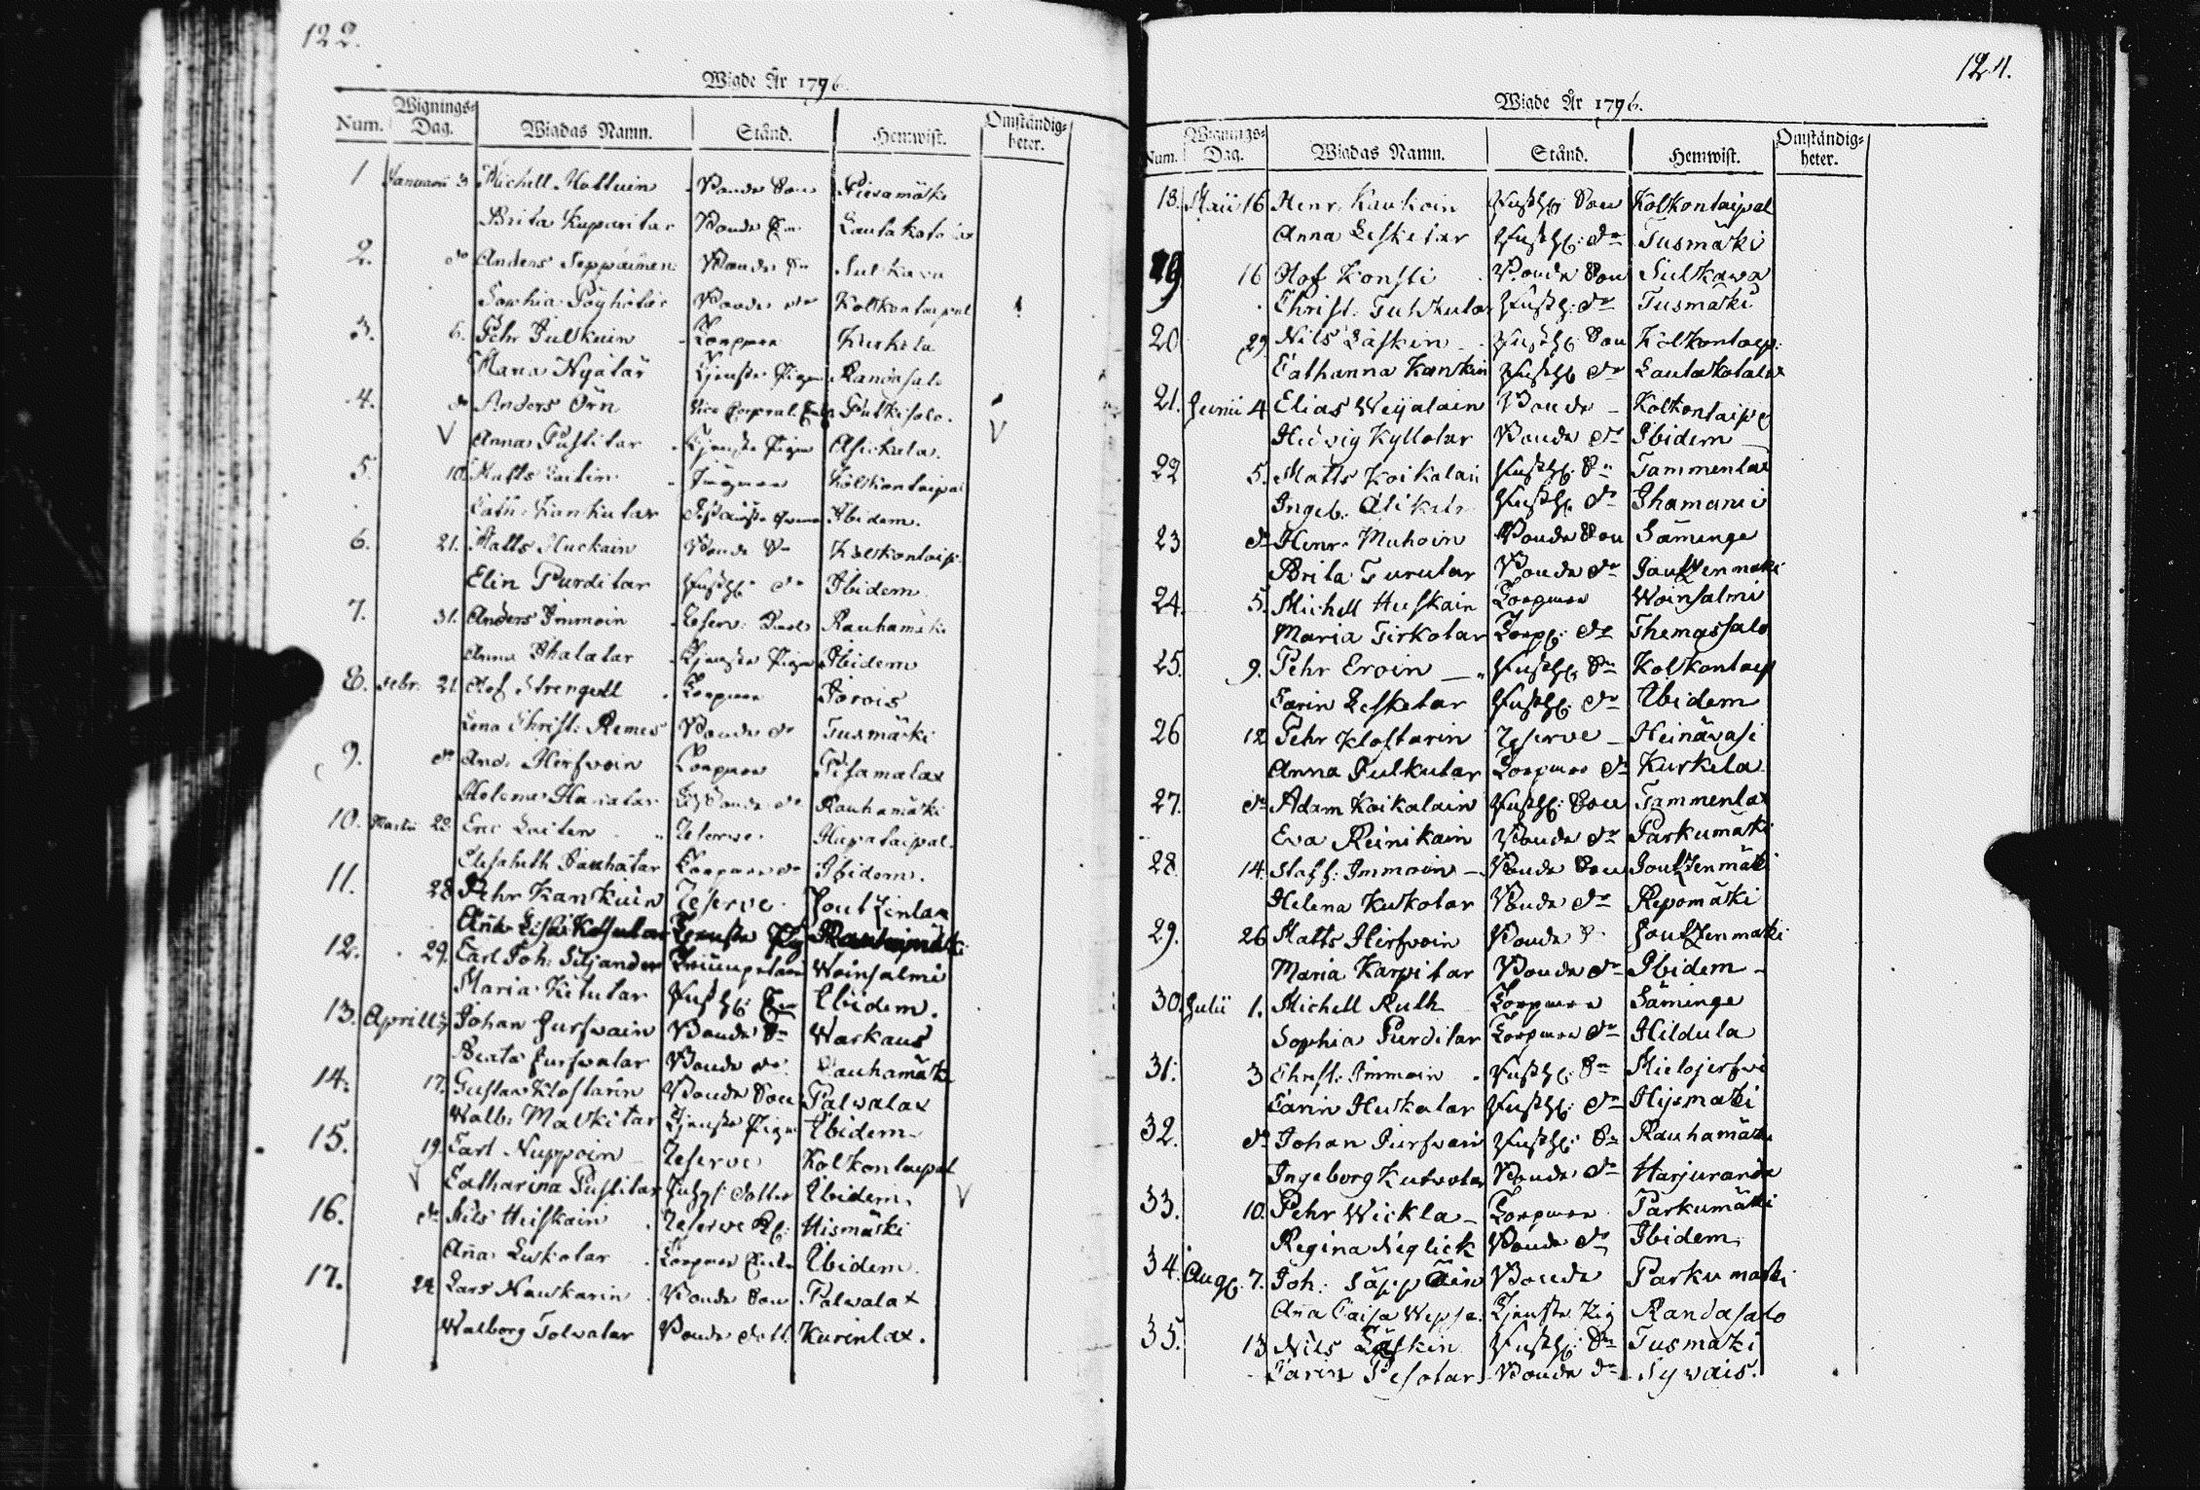 122.
Wigde År 1796.
Num. Wignings-Dag. Wigdas Namn. Stånd. Hemwist. Omständig-heter.
1 Januarii 3 Michell Bonde Son
Brita Kuparitar Bonde
2. do Anders Seppäinen Bonde Sn Sulkava
Sophia Pöyhötär Bonde dr Kolkontaipal
3. 6. Pehr Pulkuin Torpare Kurkela
Maria Nyätär Tjenste Pigan Randasalo
4. do Anders Örn Vice Corporal Putkisalo.
Anna Pustitar Tjenste Pigan
5. 10. Matts Laitin Kolkontaipal
Cath. Kankutar Ibidem.
6. 21. Matts Huckain Bonde Sn Kolkontaip.
Elin Purditar dr Ibidem
7. 31. Anders Immoin Reserv: Rauhamäki
Anna Ihalatar Tjenste Pigan Ibidem
8. Febr. 21. Olof Strengell Torpare Jorois
Lena Christ: Remes Bonde dr Tusmäki
9. do And. Hirfvoin Torpare Pisamalax
Helena dr Rauhamäki
10. Martii 22 Eric Laiten Reserve. Hapataipal.
Elisabeth Pauhatar Torpare dr Ibidem.
11. 28 Pehr Kankuin Reserve Joutzenlax
Aña Lisa Tjenste Pig
12. 29. Carl Joh. Siljander Woinsalmi
Maria Kitutar Ibidem.
13. Aprill 3 Johan Jurfwain Bonde Sn Warkaus
Beata Jurfwatar Bonde dr. Rauhamäki
14. 17. Gustav Klostarin Bonde Son Palwalax
Walb. Malkitar Tjenste Pigan Ibidem
15. 19. Carl Nuppoin Reserve Kolkontaipal
Catharina Pustitar dotter Ibidem.
16. do Nils Heiskain Reserve Kl: Hismäki
Aña Luskotar Torpare Enka Ibidem.
17. 24 Lars Nauskarin Bonde Son Palwalax
Walborg Tolvatar Bonde dott. Kurinlax.
124.
Wigde År 1796.
Num. Wignings-Dag. Wigdas Namn. Stånd. Hemwist. Omständig-heter.
18. Maii 16 Henr. Kaukoin Son Kolkontaipal
Anna Lesketar dr Tusmäki
19 16 Olof Konsti Bonde Son Sulkawa
Christ. dr Tusmäki
20 29. Nils Läskin Son Kolkontaip:
Cathanna Kankin dr Lautakotalax
21. Junii 4 Elias Weijalain Bonde Kolkontaip
Hedvig Kyllotar Bonde dr Ibidem
22 5. Matts Koikalain Sn Tammenlax
Ingeb. dr Ihamani
23 do Henr. Muhoin Bonde Son Säminge
Brita Turutar Bonde dr Joutzenmäki
24. 5. Michell Huskain Torpare Woinsalmi
Maria Tirkotar Torp: dr Themassalo
25. 9. Pehr Eroin Sn Kolkontaip
Carin Lesketar dr Ibidem
26 12 Pehr Klostarin Reserve Heinävasi
Anna Pulkutar Torpare dr Kurkela
27. do Adam Koikalain Son Tammenlax
Eva Reinikain Bonde dr Parkumäki
28. 14. Staff: Immoin Bonde Son Joutzenmäki
Helena Kukotar Bonde dr Repomäki
29. 26 Matts Hirfvoin Bonde S Joutzenmäki
Maria Karpitar Bonde dr Ibidem
30. Julii 1. Michell Ruth Torpare Säminge
Sophia Purditar Torpare dr Kildula
31. 3 Christ. Immoin Sn Mielojerfvi
Carin Huskotar dr Hijsmäki
32. do Johan Jurfvain Sn Rauhamäki
Ingeborg Kutvotar Bonde dr Harjuranda
33. 10. Pehr Wickla Torpare Parkumäki
Regina Neglick Bonde dr Ibidem
34. Aug. 7. Joh: Säppäin Bonde Parkumäki
Aña Caisa Wepsa. Tjenste Pig Randasalo
35. 13 Nils Läskin Sn Tusmäki
Carin Pesotar Bonde dr Sywäis.